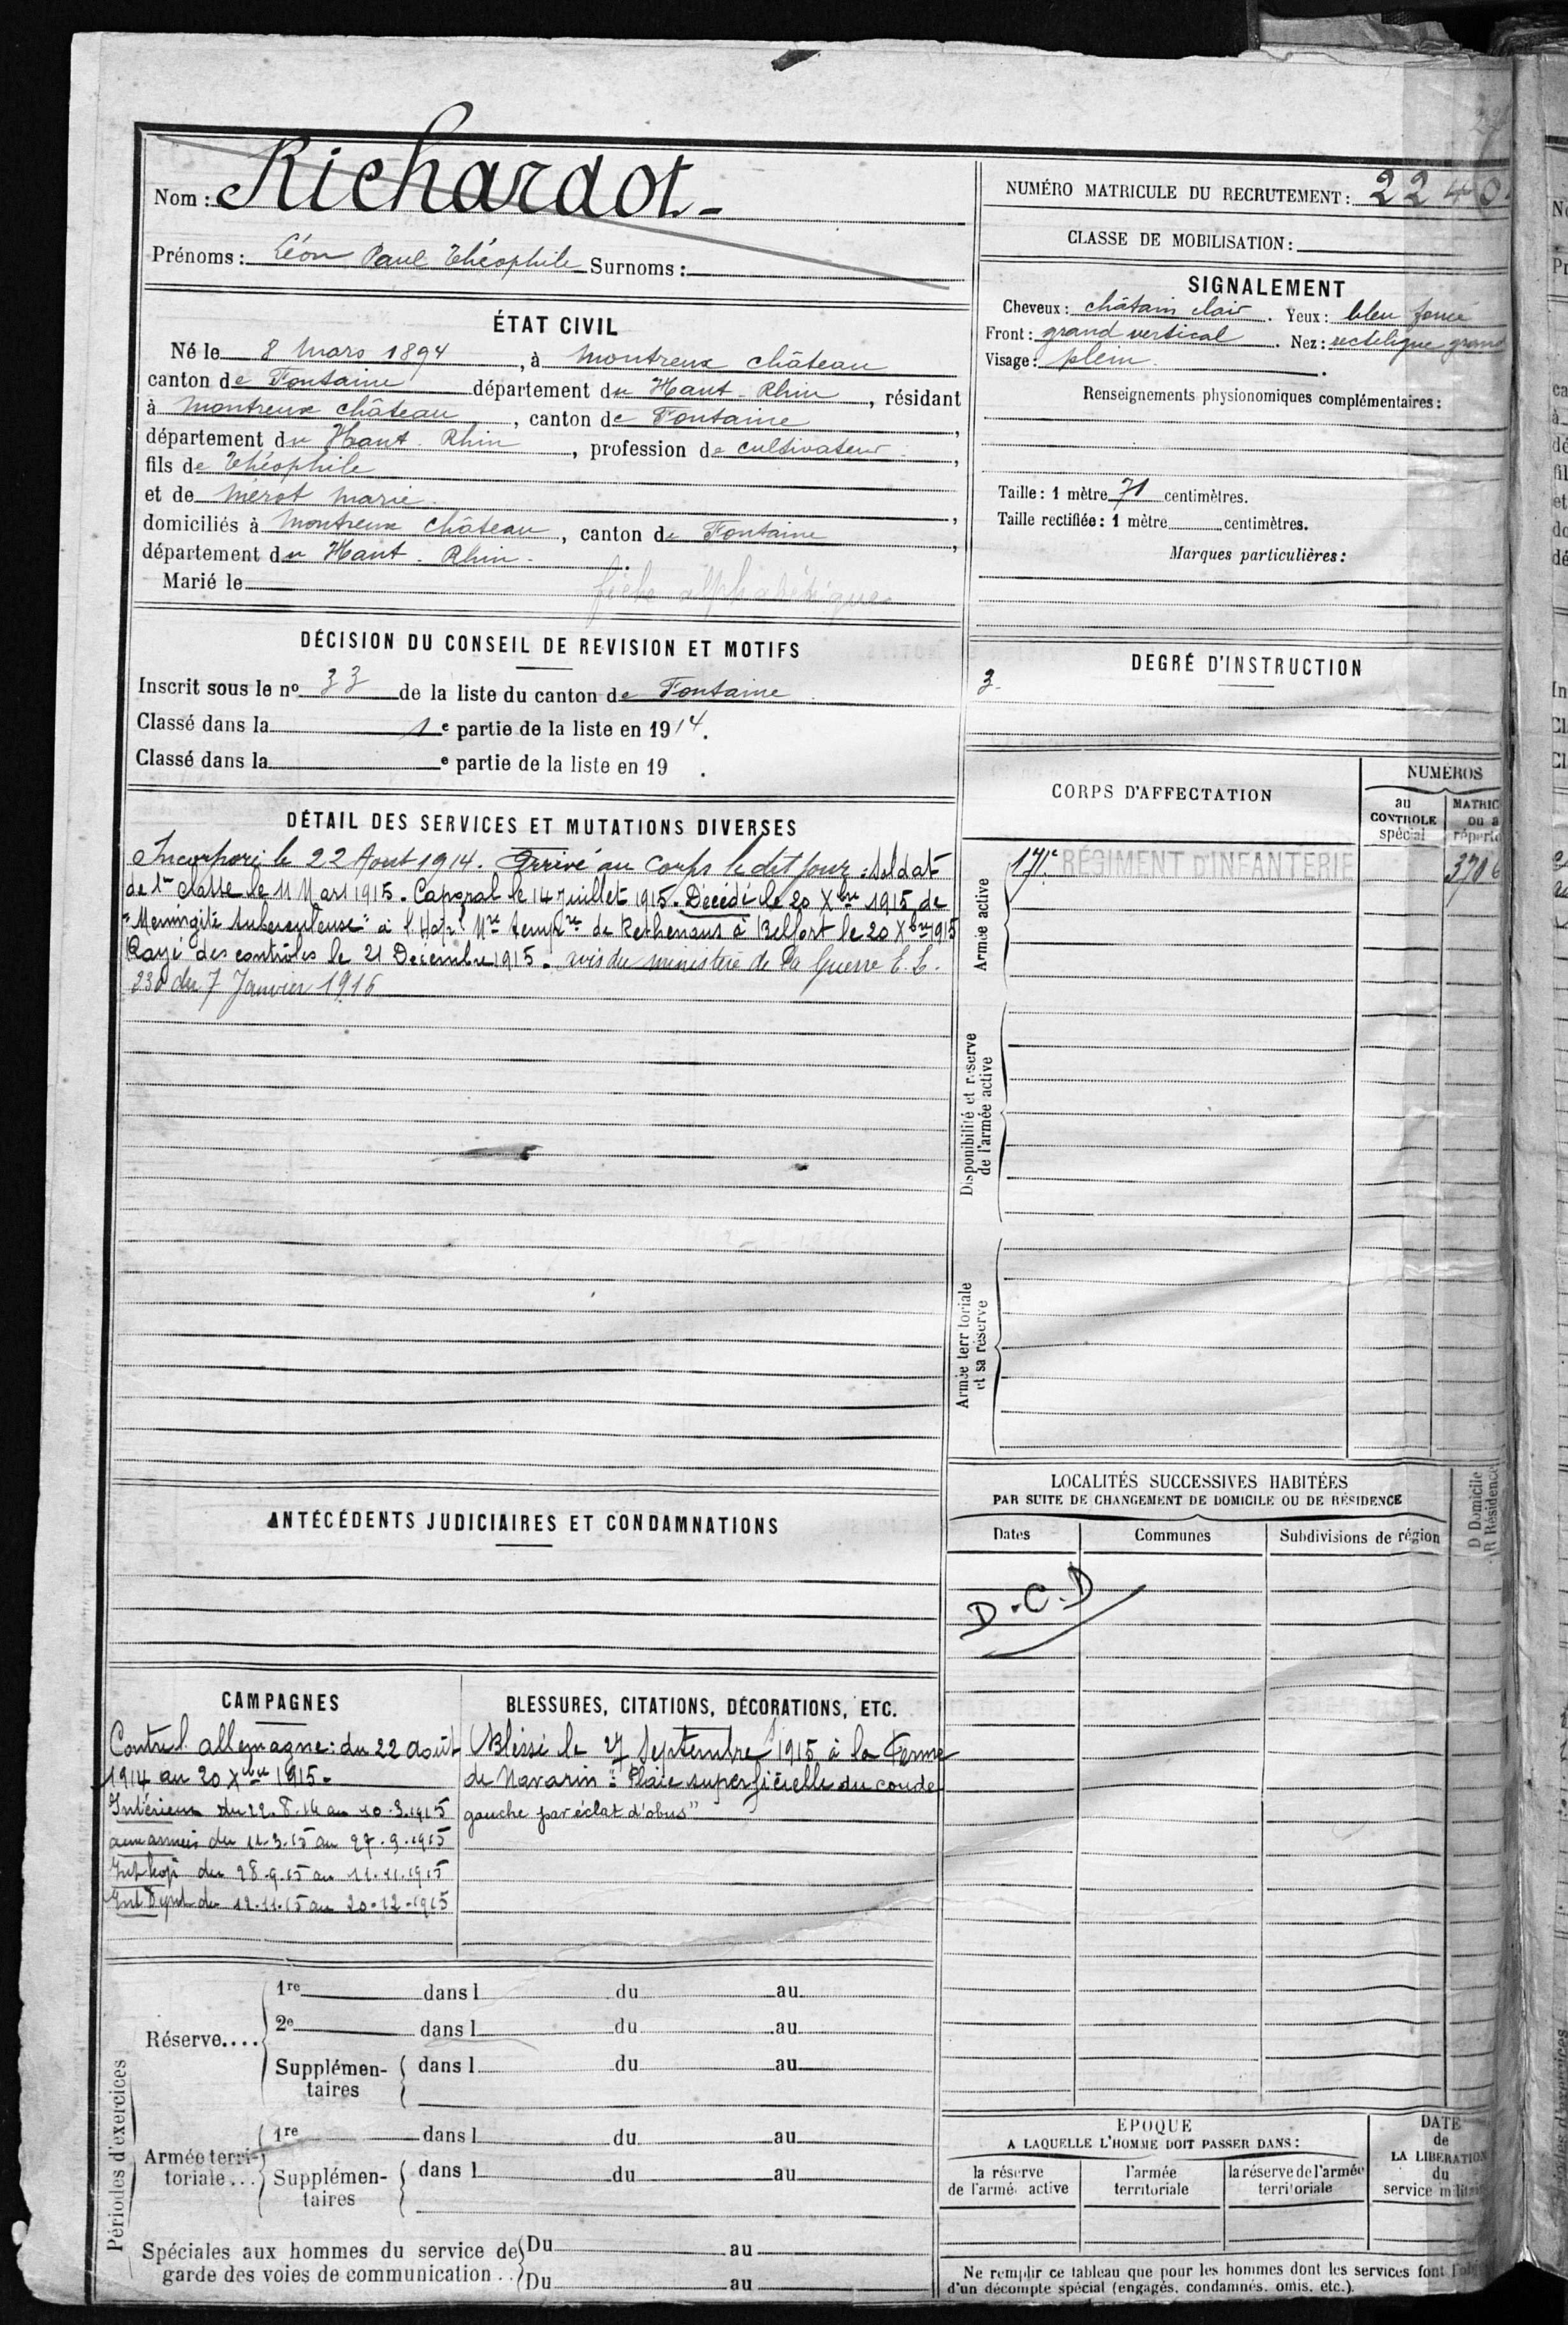 Nom : Richardot
Prénoms : Léon Paul Théophile Surnoms :
ÉTAT CIVIL
Né le 8 Mars 1894, à Montreux château
canton de Fontaine département du Haut-Rhin, résidant
à Montreux château, canton de Fontaine,
département du Haut-Rhin, profession de cultivateur,
fils de Théophile
et de Mérot Marie,
domiciliés à Montreux château, canton de Fontaine,
département du Haut-Rhin.
Marié le
fiche alphabétique
DÉCISION DU CONSEIL DE REVISION ET MOTIFS
Inscrit sous le nº 33 de la liste du canton de Fontaine
Classé dans la 1e partie de la liste en 1914.
Classé dans la e partie de la liste en 19 .
DÉTAIL DES SERVICES ET MUTATIONS DIVERSES
Incorporé le 22 Aout 1914. Arrivé au corps le dit jour. Soldat
de 1re classe le 11 Mars 1915. Caporal le 14 Juillet 1915. Décédé le 20 Xbre 1915 de
"Meningite tuberculeuse" à l'Hopal Mre tempre de Rethenans à Belfort le 20 Xbre 1915
Rayé des contrôles le 21 Decembre 1915. avis du ministère de la Guerre E. L.
230 du 7 Janvier 1916
ANTÉCÉDENTS JUDICIAIRES ET CONDAMNATIONS
CAMPAGNES
Contre l'allemagne : du 22 août
1914 au 20 Xbre 1915.
Intérieur du 22.8.14 au 10.3.1915
aux armées du 11.3.15 au 27.9.1915
Int hop du 28.9.15 au 11.11.1915
Int Dépot du 12.11.15 au 20-12-1915
BLESSURES, CITATIONS, DÉCORATIONS, ETC.
Blessé le 27 Septembre 1915 à la Ferme
de Navarin "Plaie superficielle du coude
gauche par éclat d'obus"
Périodes d'exercices
Réserve....
1re dans l du au
2e dans l du au
Supplémentaires dans l du au
Armée territoriale...
1re dans l du au
Supplémentaires dans l du au
Spéciales aux hommes du service de Du au
garde des voies de communication .. Du au
NUMÉRO MATRICULE DU RECRUTEMENT : 2240
CLASSE DE MOBILISATION :
SIGNALEMENT
Cheveux : châtain clair. Yeux : bleu foncé
Front : grand vertical. Nez : rectiligne grand
Visage : plein.
Renseignements physionomiques complémentaires :
Taille : 1 mètre 71 centimètres.
Taille rectifiée : 1 mètre centimètres.
Marques particulières :
DEGRÉ D'INSTRUCTION
3
CORPS D'AFFECTATION
NUMÉROS
au CONTRÔLE spécial
MATRIC ou a réperto
Armée active
171e RÉGIMENT D'INFANTERIE 3706
Disponibilité et réserve de l'armée active
Armée territoriale et sa réserve
LOCALITÉS SUCCESSIVES HABITÉES
PAR SUITE DE CHANGEMENT DE DOMICILE OU DE RÉSIDENCE
D Domicile
R Résidence
Dates Communes Subdivisions de région
D.C.D
EPOQUE
A LAQUELLE L'HOMME DOIT PASSER DANS :
la réserve de l'armée active
l'armée territoriale
la réserve de l'armée territoriale
DATE
de
LA LIBÉRATION
du
service milita
Ne remplir ce tableau que pour les hommes dont les services font l'ob
d'un décompte spécial (engagés, condamnés, omis, etc.).